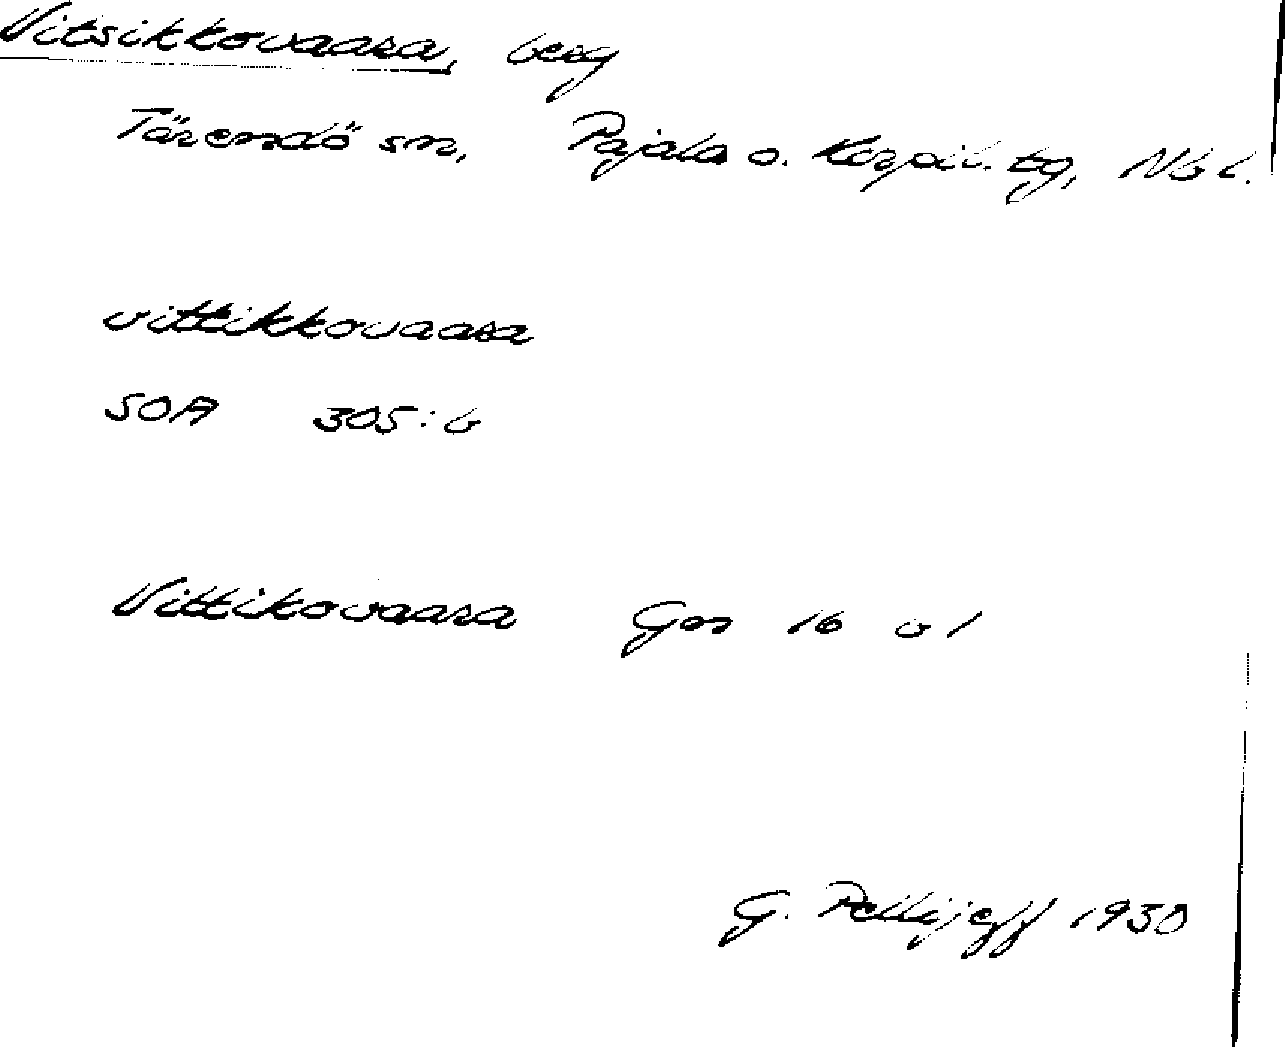 Vitsikkovaara, berg
Tärendö sn, Pajala o. Korpil. tg, Nb l.
vittikkovaara
SOA 305:6
Vittikovaara Gen 16 v 1
G. Pellijeff 1930